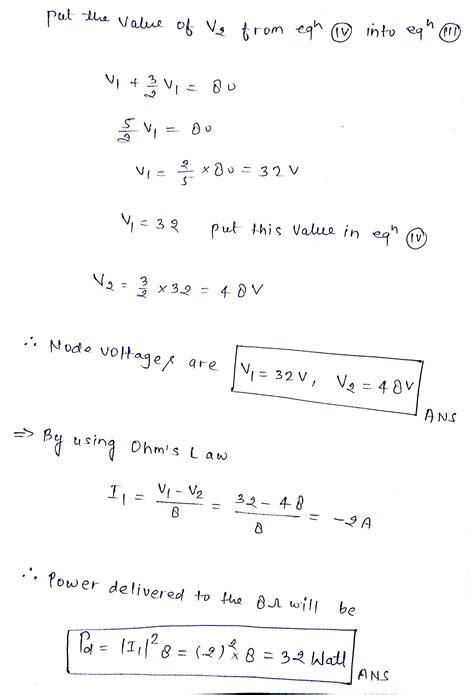 put the value of V₂ from eqⁿ (IV) into eqⁿ (III)
V₁ + 3/2 V₁ = 80
5/2 V₁ = 80
V₁ = 2/5 × 80 = 32 V
V₁ = 32 put this value in eqⁿ (IV)
V₂ = 3/2 × 32 = 48 V
∴ Node voltages are V₁ = 32 V, V₂ = 48 V
ANS
⇒ By using Ohm's Law
I₁ = (V₁ - V₂)/8 = (32 - 48)/8 = -2A
∴ Power delivered to the 8Ω will be
Pd = |I₁|² 8 = (2)² × 8 = 32 Watt
ANS